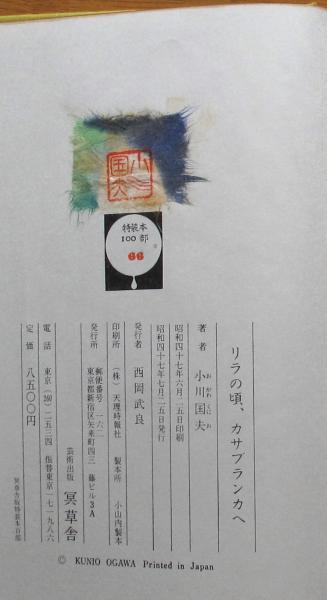 小川
国夫
特装本
100部
66
リラの頃、カサブランカへ
著者 小川国夫
お がわ くに お
昭和四十七年六月二五日印刷
昭和四十七年七月二五日発行
発行者 西岡武良
印刷所 (株)天理時報社 製本所 小山内製本
発行所 郵便番号 一六二
東京都新宿区矢来町四三 藤ビル3A
芸術出版 冥草舎
電話 東京(260)二五三四 振替東京一七一九八六
定価 八五〇〇円
冥草舎版特装本百部
© KUNIO OGAWA Printed in Japan